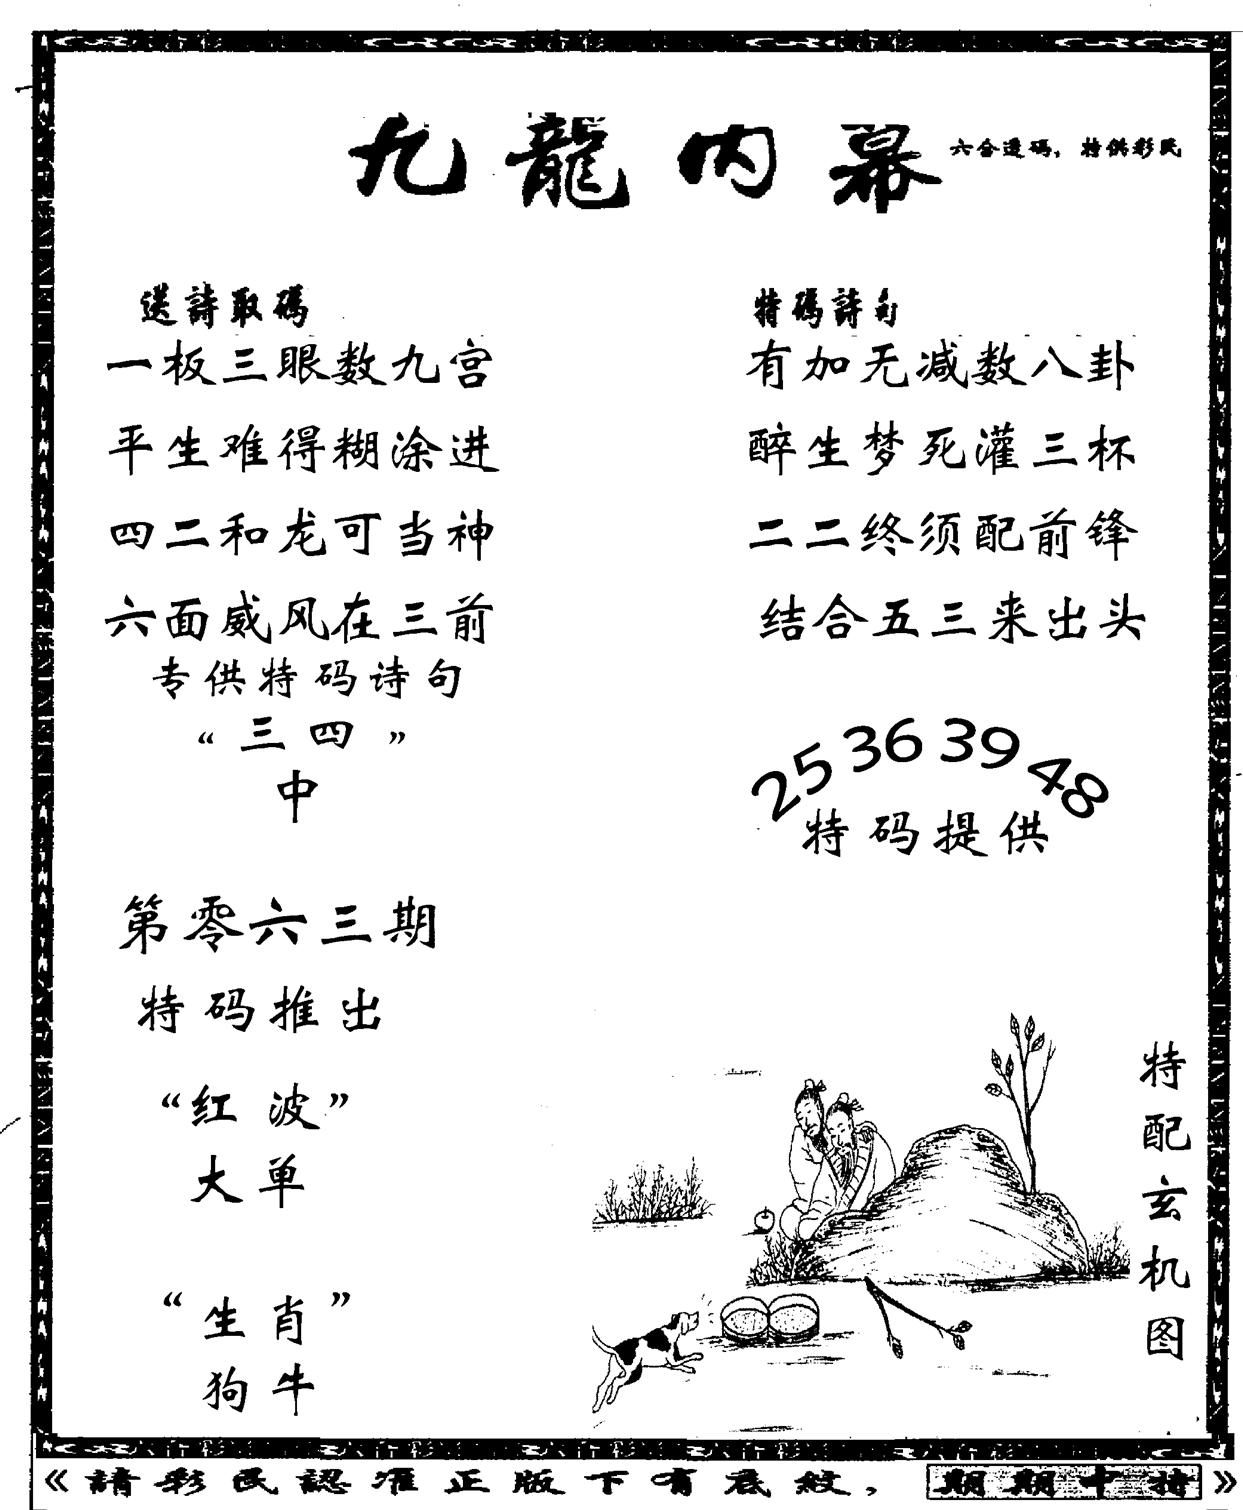 九龍内幕
六合透码，特供彩民
送詩取碼
一板三眼数九宫
平生难得糊涂进
四二和龙可当神
六面威风在三前
专供特码诗句
“三四”
中
特碼詩句
有加无减数八卦
醉生梦死灌三杯
二二终须配前锋
结合五三来出头
25 36 39 48
特码提供
第零六三期
特码推出
“红波”
大单
“生肖”
狗牛
特配玄机图
《請彩民認准正版下有底紋，期期中特》